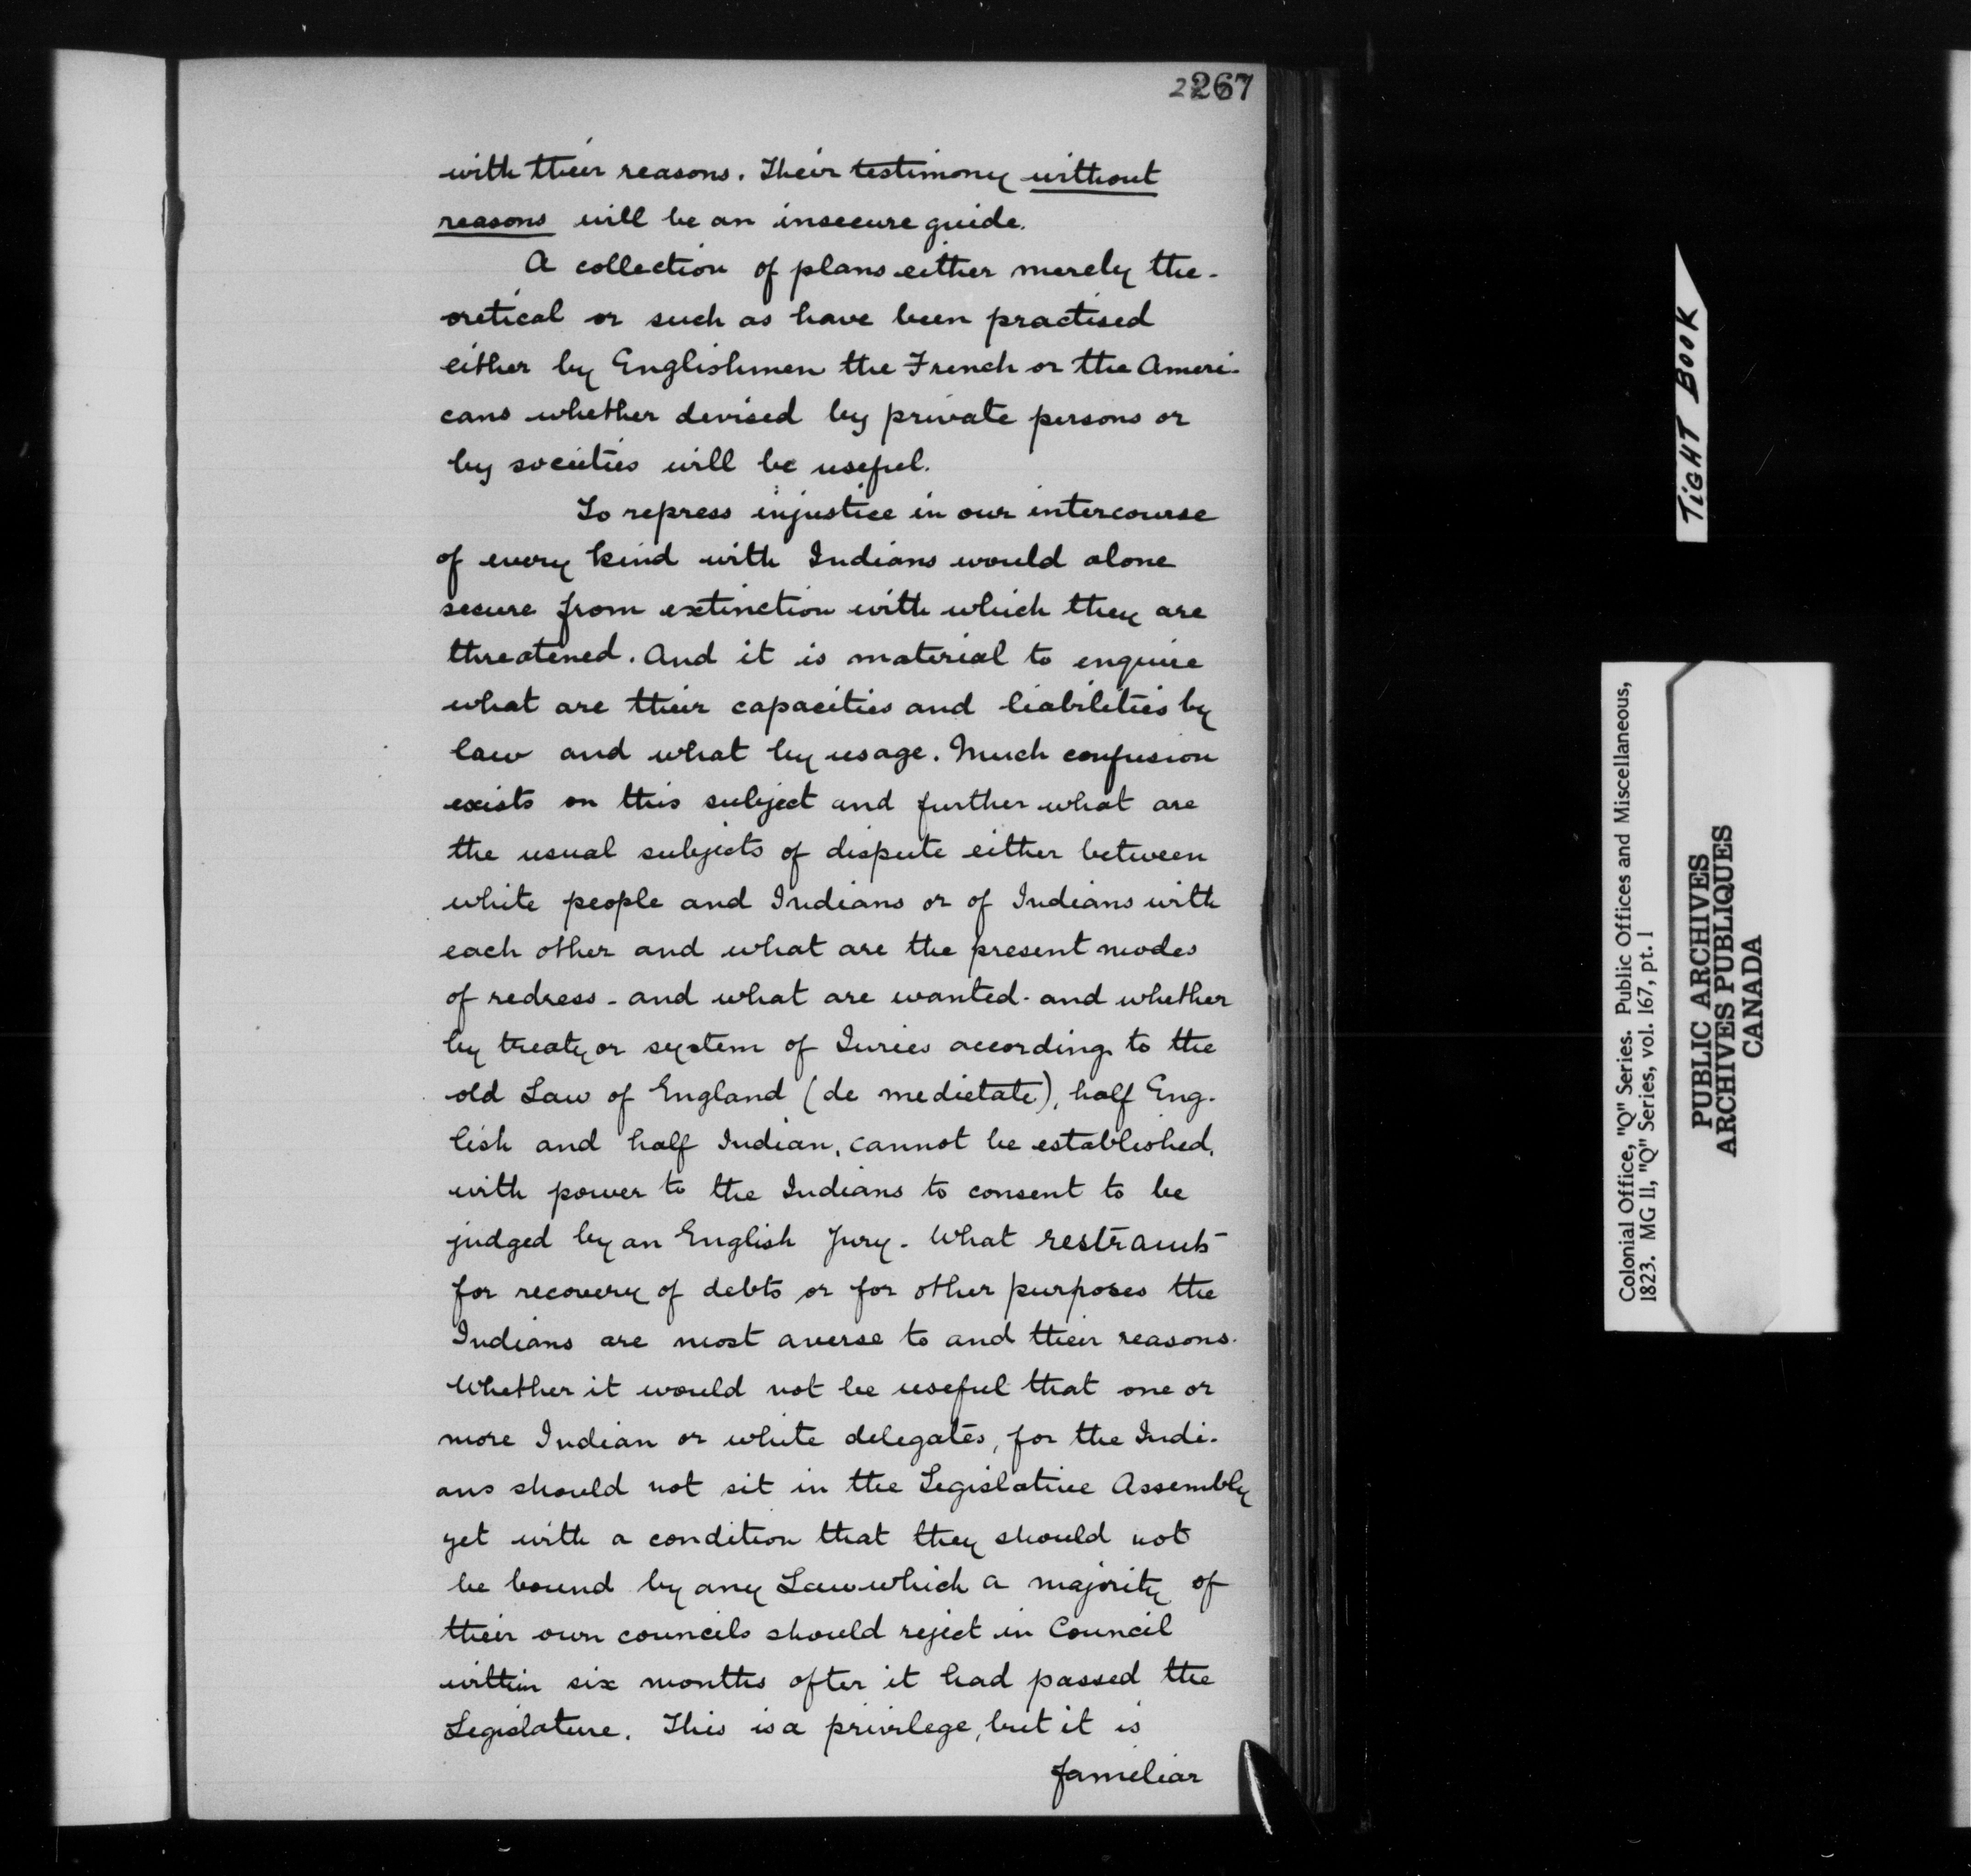 267
with their reasons. Their testimony without
reasons will be an insecure guide.
A collection of plans either merely the-
oretical or such as have been practised
either by Englishmen the French or the Ameri-
cans whether devised by private persons or
by societies will be useful.
To repress injustice in our intercourse
of every kind with Indians would alone
secure from extinction with which they are
threatened. And it is material to enquire
what are their capacities and liabilities by
law and what by usage. Much confusion
exists on this subject and further what are
the usual subjects of dispute either between
white people and Indians or of Indians with
each other and what are the present modes
of redress - and what are wanted - and whether
by treaty or system of Juries according to the
old Law of England (de medietate), half Eng-
lish and half Indian, cannot be established,
with power to the Indians to consent to be
judged by an English Jury. What restraints
for recovery of debts or for other purposes the
Indians are most averse to and their reasons.
Whether it would not be useful that one or
more Indian or white delegates, for the Indi-
ans should not sit in the Legislative Assembly
yet with a condition that they should not
be bound by any Law which a majority of
their own councils should reject in Council
within six months after it had passed the
Legislature. This is a privilege, but it is
familiar
TIGHT BOOK
Colonial Office, "Q" Series. Public Offices and Miscellaneous,
1823. MG 11, "Q" Series, vol. 167, pt. 1
PUBLIC ARCHIVES
ARCHIVES PUBLIQUES
CANADA